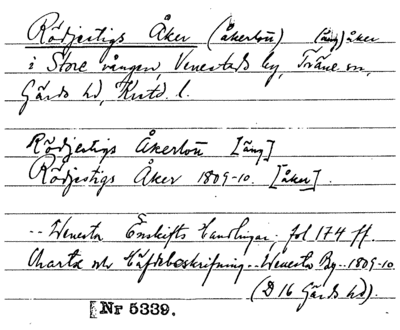 Rödjestigs Åker (åkerton) (äng) åker
i Store vången, Venestads by, Träne sn,
Gärds hd, Krstd. l.
Rödjestigs Åkerton [äng]
Rödjestigs Åker 1809-10. [åker].
-- Wenesta Enskifts Handlingar, fol 174 ff.
Charta och Häfdebeskrifning -- Wenesta By -- 1809-10
(D 16 Gärds hd).
[Nr 5339.